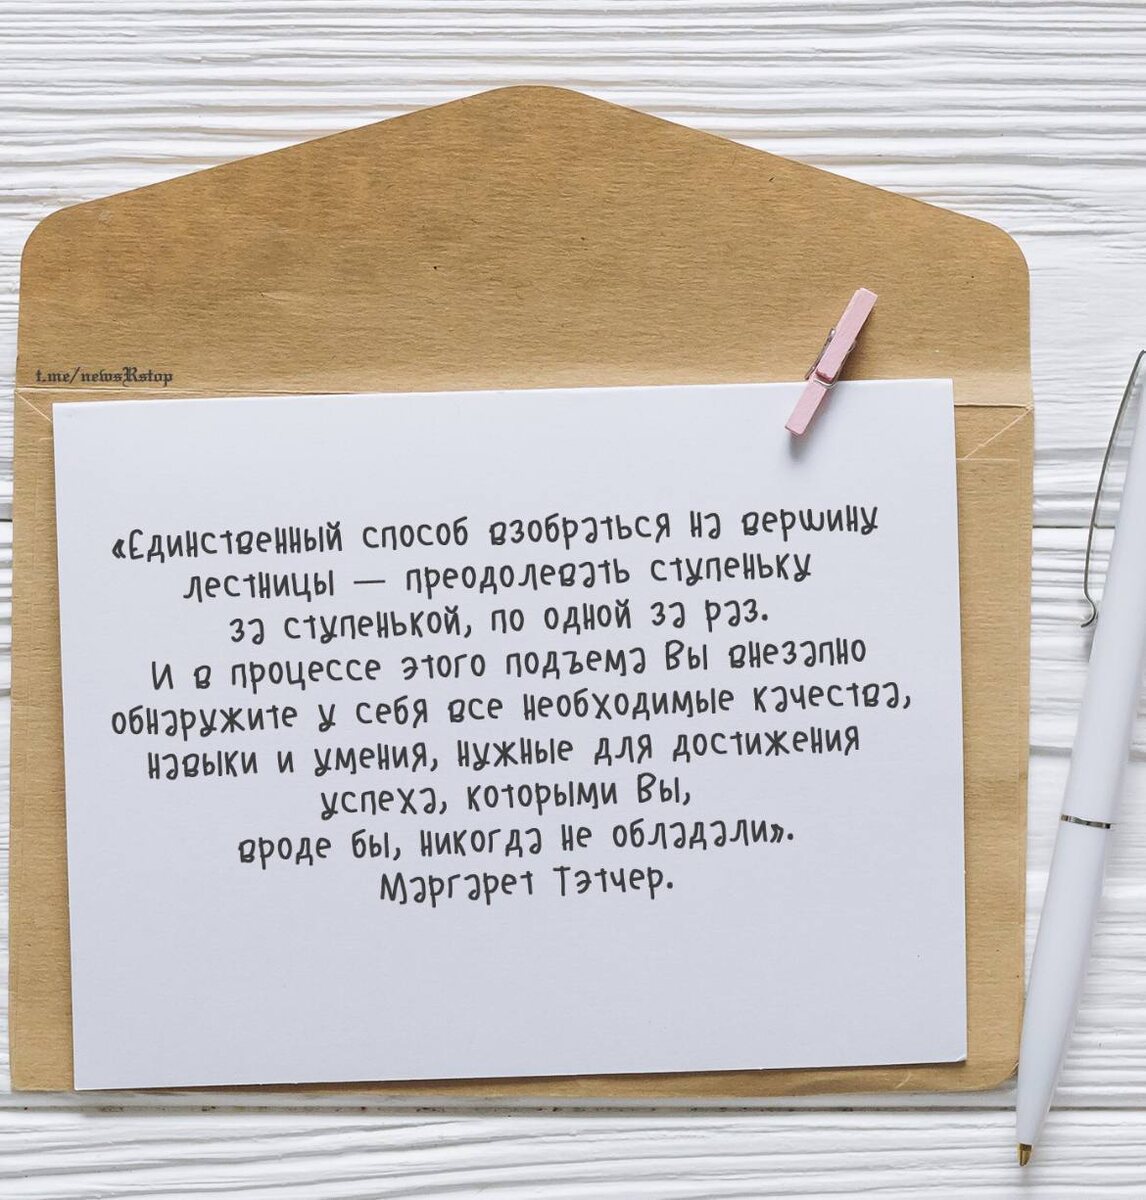 t.me/newsRstop
«Единственный способ взобраться на вершину
лестницы — преодолевать ступеньку
за ступенькой, по одной за раз.
И в процессе этого подъема Вы внезапно
обнаружите у себя все необходимые качества,
навыки и умения, нужные для достижения
успеха, которыми Вы,
вроде бы, никогда не обладали».
Маргарет Тэтчер.